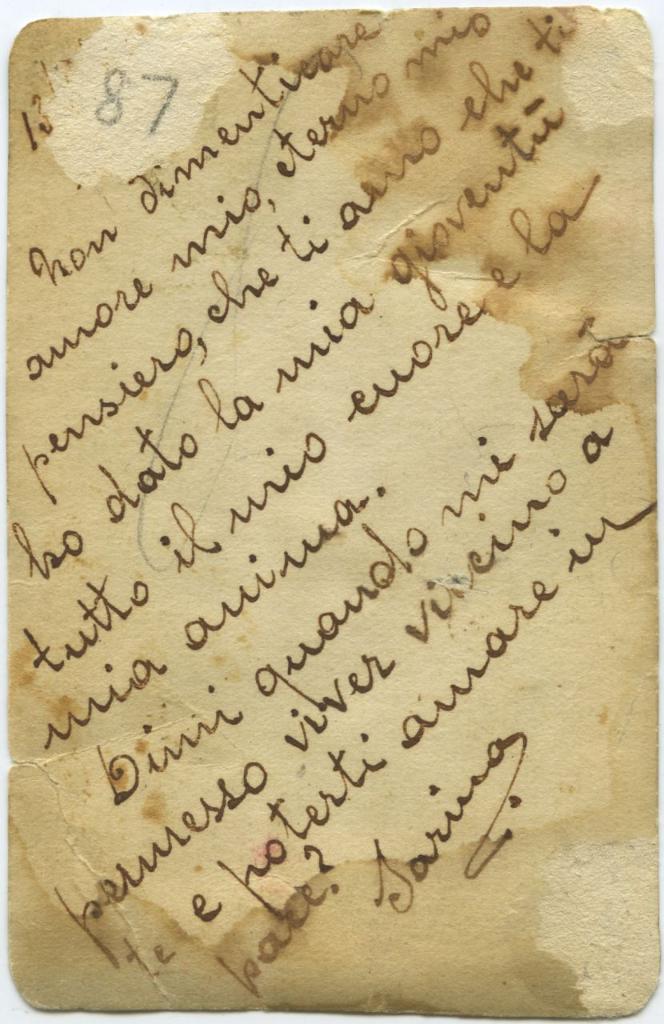 87
Non dimenticare
amore mio, eterno mio
pensiero, che ti amo che ti
ho dato la mia gioventù
tutto il mio cuore e la
mia anima.
Dimi quando mi sarà
permesso viver vicino a
te e poterti amare in
pace? Sarina